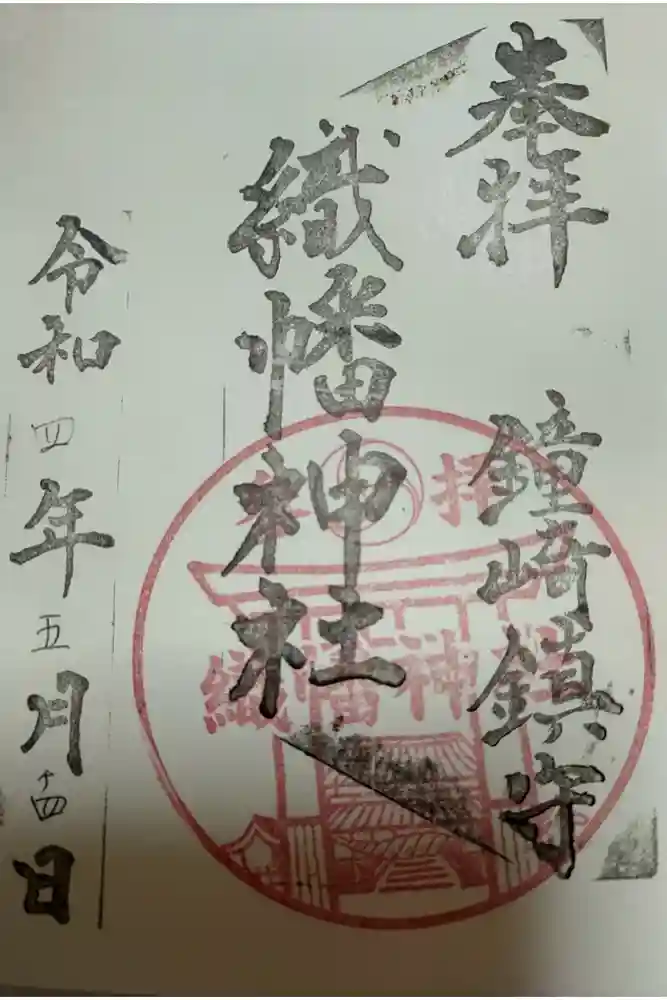 奉拝
鐘崎鎮守
織幡神社
令和四年五月十四日
拝
織幡神社